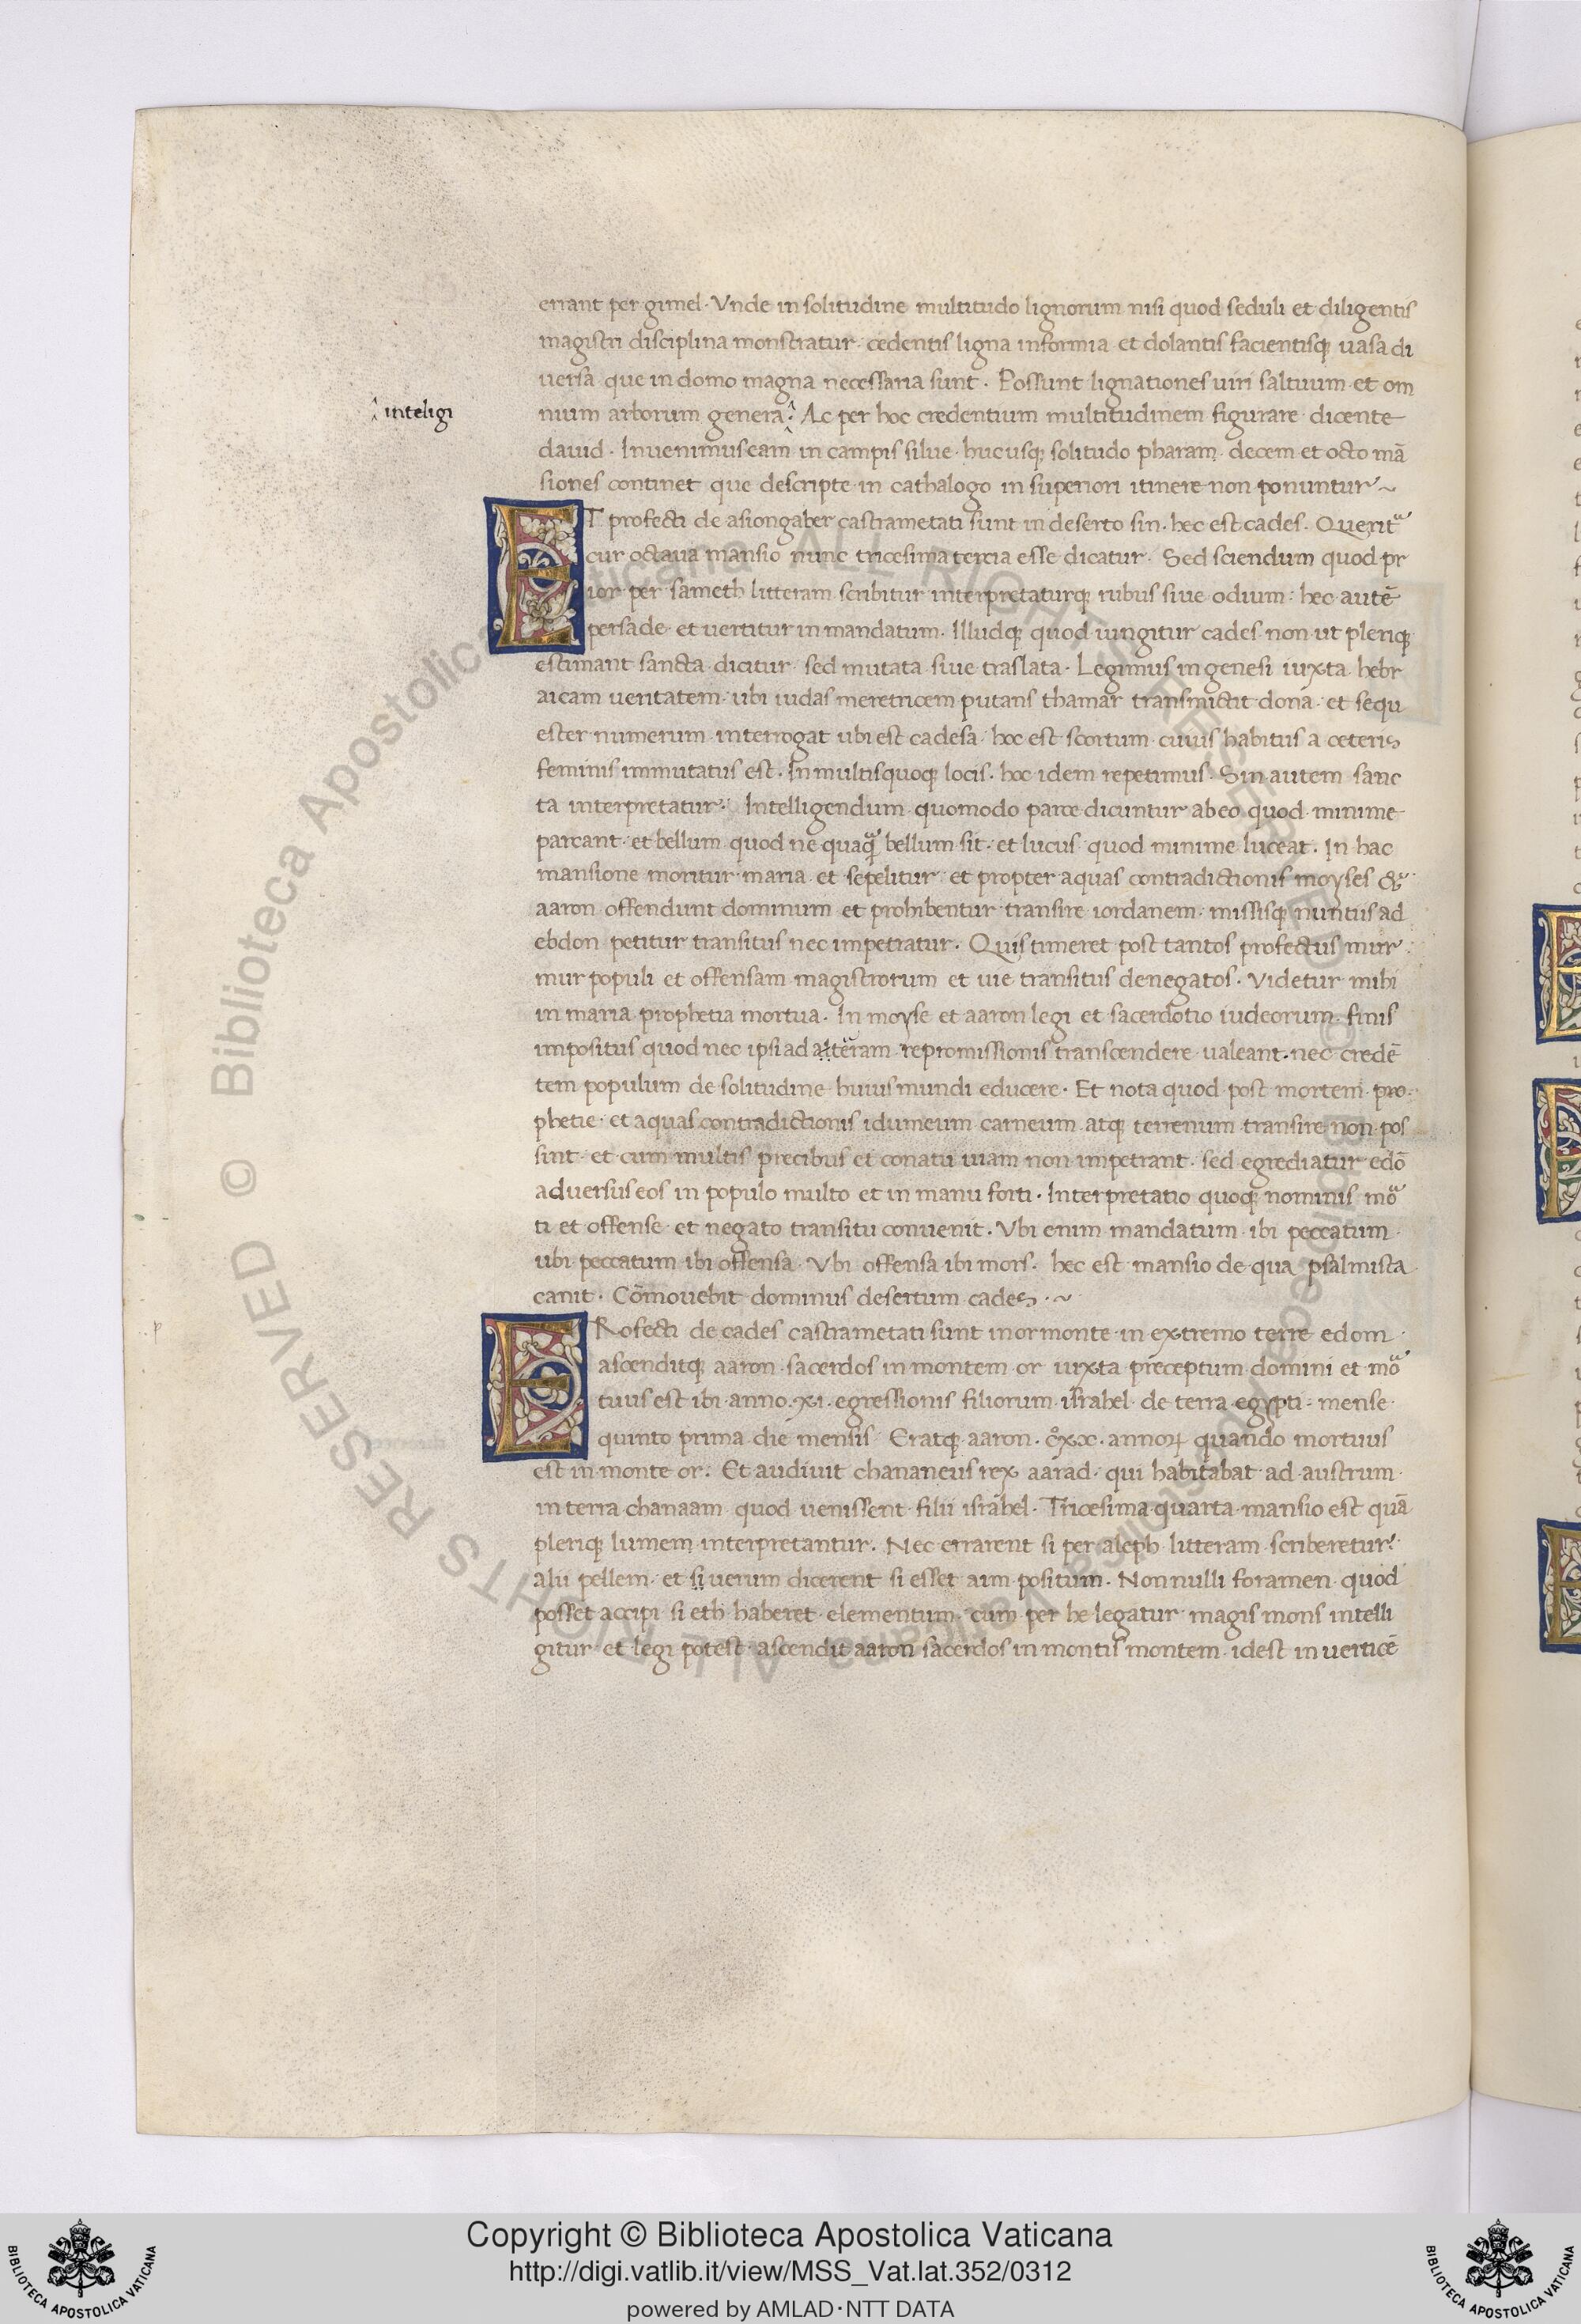 errant per gimel · Vnde in solitudine multitudo lignorum nisi quod seduli et diligentis
magistri disciplina monstratur · cedentis ligna informia et dolantis facientisq; uasa di
uersa que in domo magna necessaria sunt · Possunt lignationes uiri saltuum et om
^ inteligi
nium arborum genera : Ac per hoc credentium multitudinem figurare dicente
dauid · Inuenimus eam in campis silue · hucusq; solitudo pharam · decem et octo mā
siones continet que descripte in cathalogo in superiori itinere non ponuntur ~
ET profecti de asiongaber castrametati sunt in deserto sin · hec est cades · Querit᷑
cur octaua mansio nunc tricesima tercia esse dicatur · Sed sciendum quod pr
ior per sameth litteram scribitur interpretaturq; rubus siue odium : hec autē
per sade et uertitur in mandatum · Illudq; quod iungitur cades non ut pleriq;
estimant sancta dicitur sed mutata siue traslata · Legimus in genesi iuxta hebr
aicam ueritatem · ubi iudas meretricem putans thamar transmictit dona · et sequ
ester numerum interrogat ubi est cadesa · hoc est scortum cuius habitus a ceteris
feminis immutatus est · In multisquoq; locis · hoc idem repetimus · Sin autem sanc
ta interpretatur · Intelligendum quomodo parce dicuntur ab eo quod minime
parcant · et bellum quod ne quaq̄ bellum sit · et lucus quod minime luceat · In hac
mansione moritur maria et sepelitur · et propter aquas contradictionis moyses &
aaron offendunt dominum et prohibentur transire iordanem · missisq; nuntiis ad
ebdon petitur transitus nec impetratur · Quis timeret post tantos profectus mur
mur populi et offensam magistrorum et uie transitus denegatos · Videtur mihi
in maria prophetia mortua · In moyse et aaron legi et sacerdotio iudeorum finis
impositus quod nec ipsi ad aterram repromissionis transcendere ualeant · nec credē
tem populum de solitudine huius mundi educere · Et nota quod post mortem pro
phetie · et aquas contradictionis idumeum carneum atq; terrenum transire non pos
sint · et cum multis precibus et conatu uiam non impetrant · sed egrediatur edō
aduersus eos in populo multo et in manu forti · Interpretatio quoq; nominis mo᷑
ti et offense et negato transitu conuenit · Vbi enim mandatum ibi peccatum
ubi peccatum ibi offensa · Vbi offensa ibi mors · hec est mansio de qua psalmista
canit · Cōmouebit dominus desertum cades · ~
PRofecti de cades castrametati sunt in or monte in extremo terre edom ·
ascenditq; aaron sacerdos in montem or iuxta preceptum domini et mo᷑
tuus est ibi anno · xi · egressionis filiorum israhel de terra egypti = mense
quinto prima die mensis Eratq; aaron · cxx · annoꝝ quando mortuus
est in monte or · Et audiuit chananeus rex aarad · qui habitabat ad austrum
in terra chanaam quod uenissent filii israhel · Tricesima quarta mansio est quā
pleriq; lumem interpretantur · Nec errarent si per aleph litteram scriberetur :
alii pellem · et si uerum dicerent si esset aim positum · Nonnulli foramen quod
posset accipi si eth haberet elementum · cum per he legatur magis mons intelli
gitur et legi potest · ascendit aaron sacerdos in montis montem · idest in uerticē
© Biblioteca Apostolica Vaticana ALL RIGHTS RESERVED
Copyright © Biblioteca Apostolica Vaticana
http://digi.vatlib.it/view/MSS_Vat.lat.352/0312
powered by AMLAD·NTT DATA
BIBLIOTECA APOSTOLICA VATICANA
BIBLIOTECA APOSTOLICA VATICANA